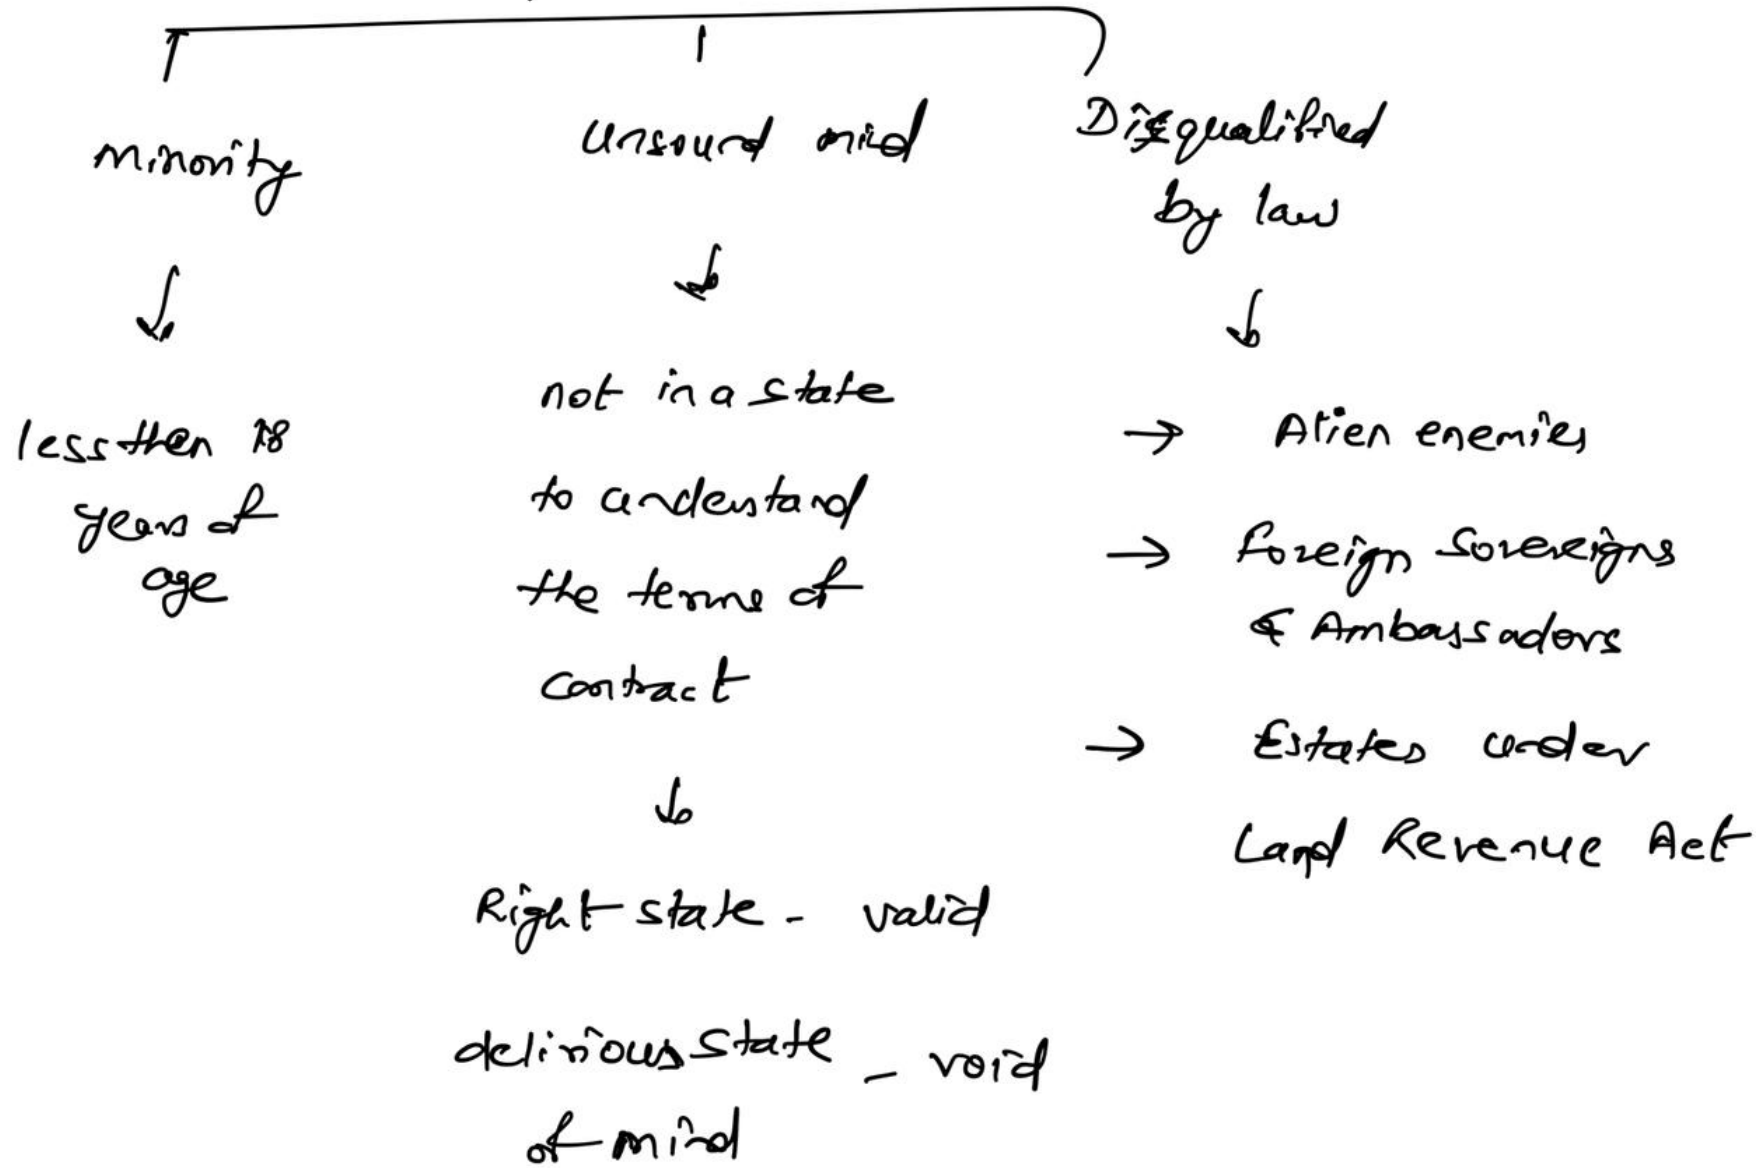 Minority
less then 18
years of
age
Unsound mind
not in a state
to understand
the terms of
contract
Right state - valid
delirious state - void
of mind
Disqualified
by law
→ Alien enemies
→ Foreign Sovereigns
& Ambassadors
→ Estates under
Land Revenue Act